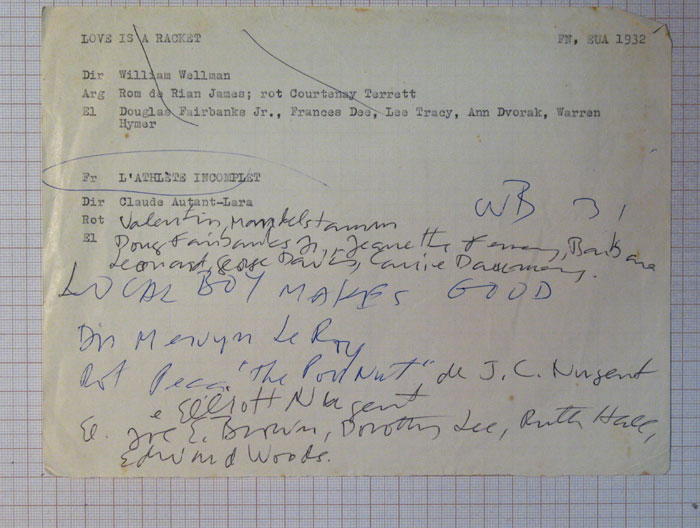 LOVE IS A RACKET FN, EUA 1932
Dir William Wellman
Arg Rom de Rian James; rot Courtenay Terrett
El Douglas Fairbanks Jr., Frances Dee, Lee Tracy, Ann Dvorak, Warren
Hymer
Fr L'ATHLÈTE INCOMPLET
Dir Claude Autant-Lara WB 31
Rot Valentin Mandelstamm
El Doug Fairbanks Jr., Jeannette Ferney, Barbara
Leonard, George Davis, Carrie Daumery.
LOCAL BOY MAKES GOOD
Dir Mervyn Le Roy
Rot Peça "The Poor Nut" de J. C. Nugent
e Elliott Nugent
El. Joe E. Brown, Dorothy Lee, Ruth Hall,
Edward Woods.